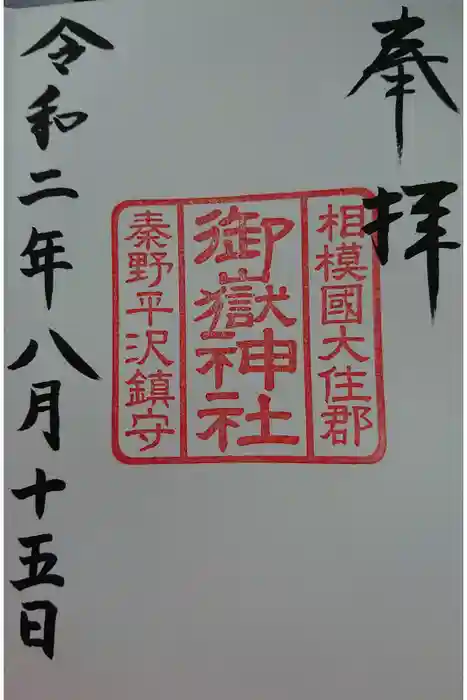 奉拝
相模國大住郡
御嶽神社
秦野平沢鎮守
令和二年八月十五日